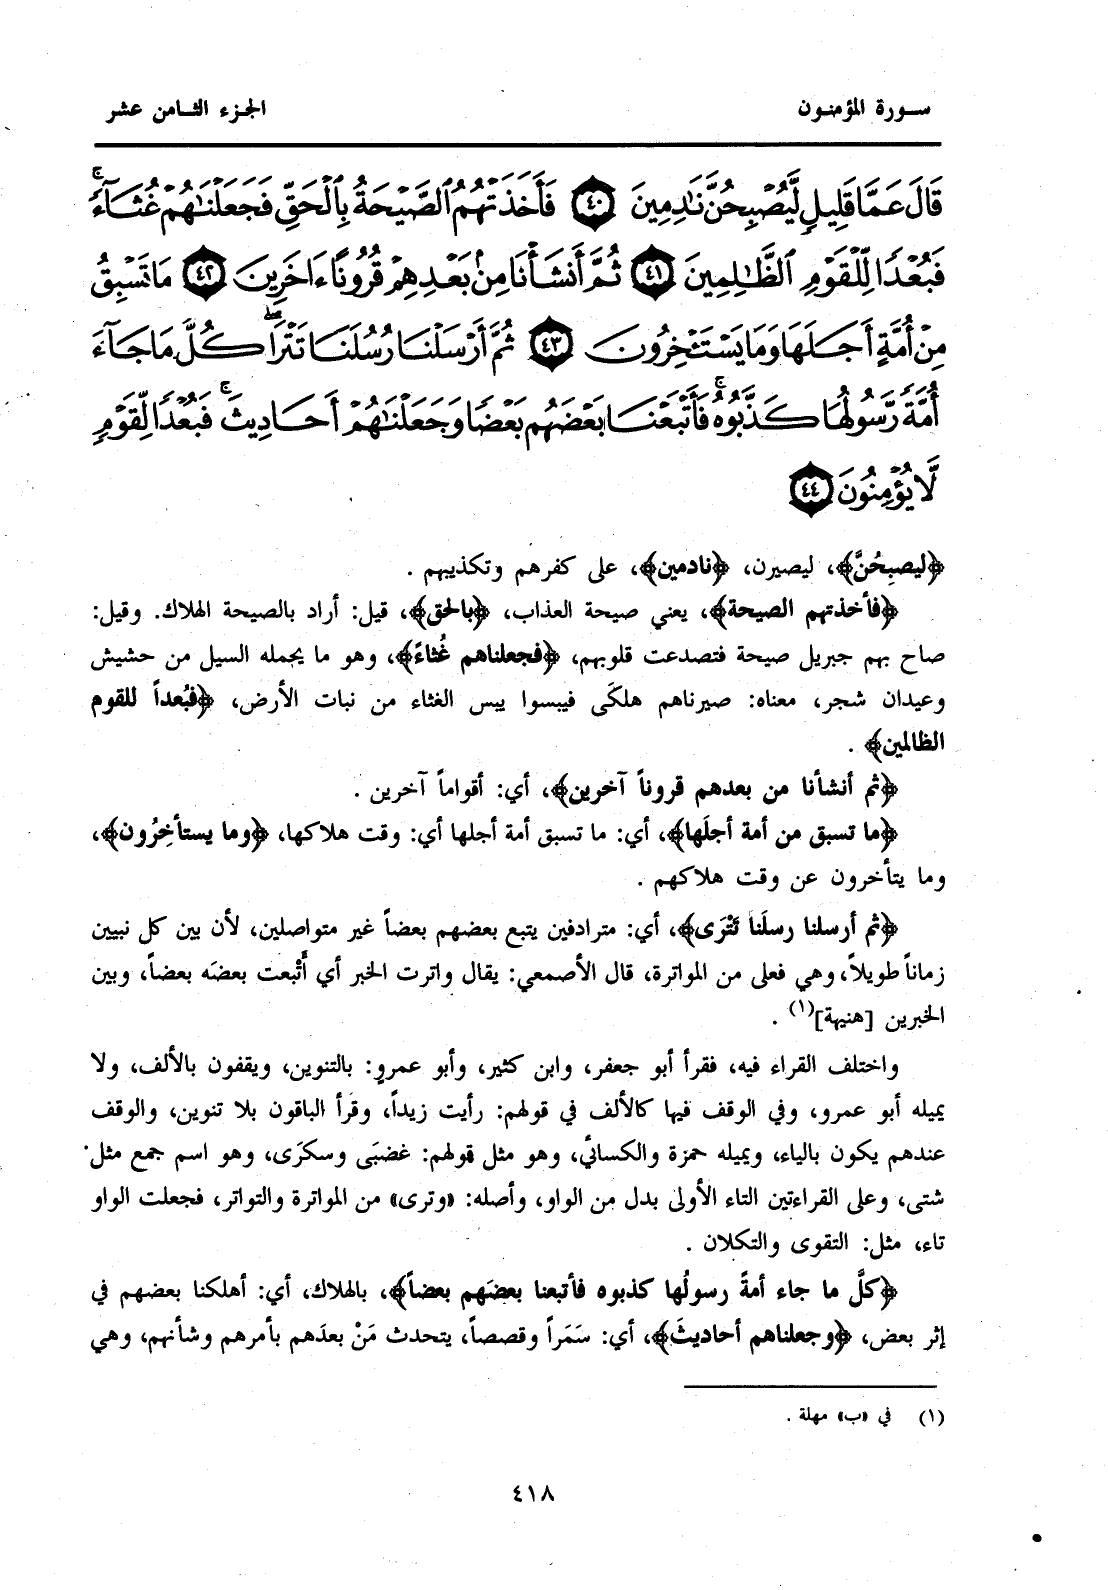 سـورة المؤمنـون
الجـزء الثـامن عشر
قَالَ عَمَّا قَلِيلٍ لَّيُصْبِحُنَّ نَٰدِمِينَ ﴿٤٠﴾ فَأَخَذَتْهُمُ ٱلصَّيْحَةُ بِٱلْحَقِّ فَجَعَلْنَٰهُمْ غُثَآءً ۚ
فَبُعْدًا لِّلْقَوْمِ ٱلظَّٰلِمِينَ ﴿٤١﴾ ثُمَّ أَنشَأْنَا مِنۢ بَعْدِهِمْ قُرُونًا ءَاخَرِينَ ﴿٤٢﴾ مَا تَسْبِقُ
مِنْ أُمَّةٍ أَجَلَهَا وَمَا يَسْتَـْٔخِرُونَ ﴿٤٣﴾ ثُمَّ أَرْسَلْنَا رُسُلَنَا تَتْرَا ۖ كُلَّ مَا جَآءَ
أُمَّةً رَّسُولُهَا كَذَّبُوهُ ۚ فَأَتْبَعْنَا بَعْضَهُم بَعْضًا وَجَعَلْنَٰهُمْ أَحَادِيثَ ۚ فَبُعْدًا لِّقَوْمٍ
لَّا يُؤْمِنُونَ ﴿٤٤﴾
﴿ليصبِحُنَّ﴾، ليصيرن، ﴿نادمين﴾، على كفرهم وتكذيبهم .
﴿فأخذتهم الصيحة﴾، يعني صيحة العذاب، ﴿بالحق﴾، قيل: أراد بالصيحة الهلاك. وقيل:
صاح بهم جبريل صيحة فتصدعت قلوبهم، ﴿فجعلناهم غُثاءً﴾، وهو ما يحمله السيل من حشيش
وعيدان شجر، معناه: صيرناهم هلكَى فيبسوا يبس الغثاء من نبات الأرض، ﴿فبُعداً للقوم
الظالمين﴾ .
﴿ثم أنشأنا من بعدهم قروناً آخرين﴾، أي: أقواماً آخرين .
﴿ما تسبق من أمة أجلَها﴾، أي: ما تسبق أمة أجلها أي: وقت هلاكها، ﴿وما يستأخِرُون﴾،
وما يتأخرون عن وقت هلاكهم .
﴿ثم أرسلنا رسلَنا تَتْرَى﴾، أي: مترادفين يتبع بعضهم بعضاً غير متواصلين، لأن بين كل نبيين
زماناً طويلاً، وهي فعلى من المواترة، قال الأصمعي: يقال واترت الخبر أي أَتْبعت بعضَه بعضاً، وبين
الخبرين [هنيهة](١) .
واختلف القراء فيه، فقرأ أبو جعفر، وابن كثير، وأبو عمروٍ: بالتنوين، ويقفون بالألف، ولا
يميله أبو عمرو، وفي الوقف فيها كالألف في قولهم: رأيت زيداً، وقرأ الباقون بلا تنوين، والوقف
عندهم يكون بالياء، ويميله حمزة والكسائي، وهو مثل قولهم: غضبَى وسكرَى، وهو اسم جمع مثل
شتى، وعلى القراءتين التاء الأولى بدل من الواو، وأصله: «وترى» من المواترة والتواتر، فجعلت الواو
تاء، مثل: التقوى والتكلان .
﴿كلَّ ما جاء أمةً رسولُها كذبوه فأتبعنا بعضَهم بعضاً﴾، بالهلاك، أي: أهلكنا بعضهم في
إثر بعض، ﴿وجعلناهم أحاديثَ﴾، أي: سَمَراً وقصصاً، يتحدث مَنْ بعدَهم بأمرهم وشأنهم، وهي
(١) في «ب» مهلة .
٤١٨